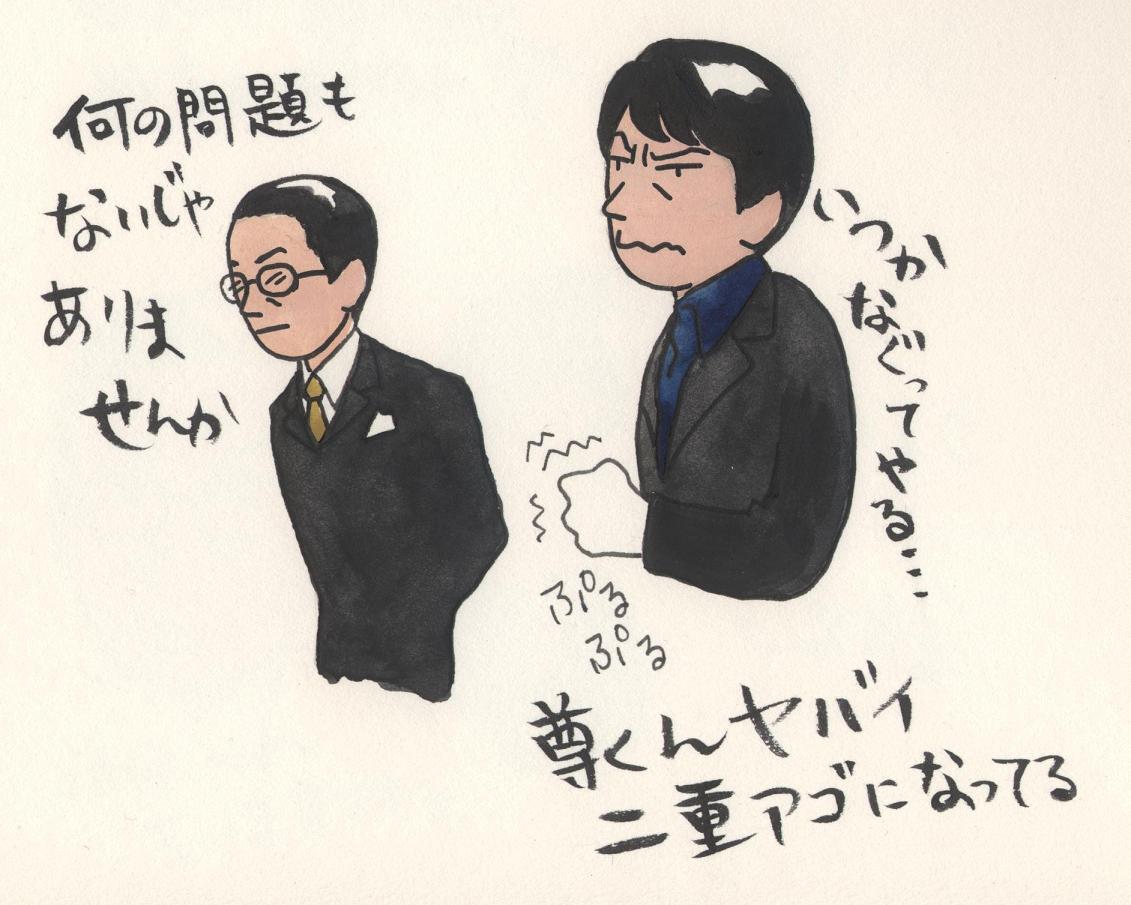 何の問題も
ないじゃ
ありま
せんか
いつか
なぐって
やる…
ぷる
ぷる
尊くんヤバイ
二重アゴになってる